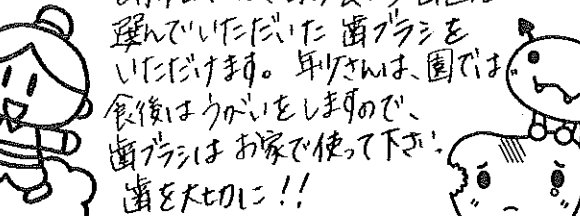 選んでいただいた 歯ブラシを
いただけます。年少さんは、園では
食後はうがいをしますので、
歯ブラシは お家で使って下さい。
歯を大切に!!